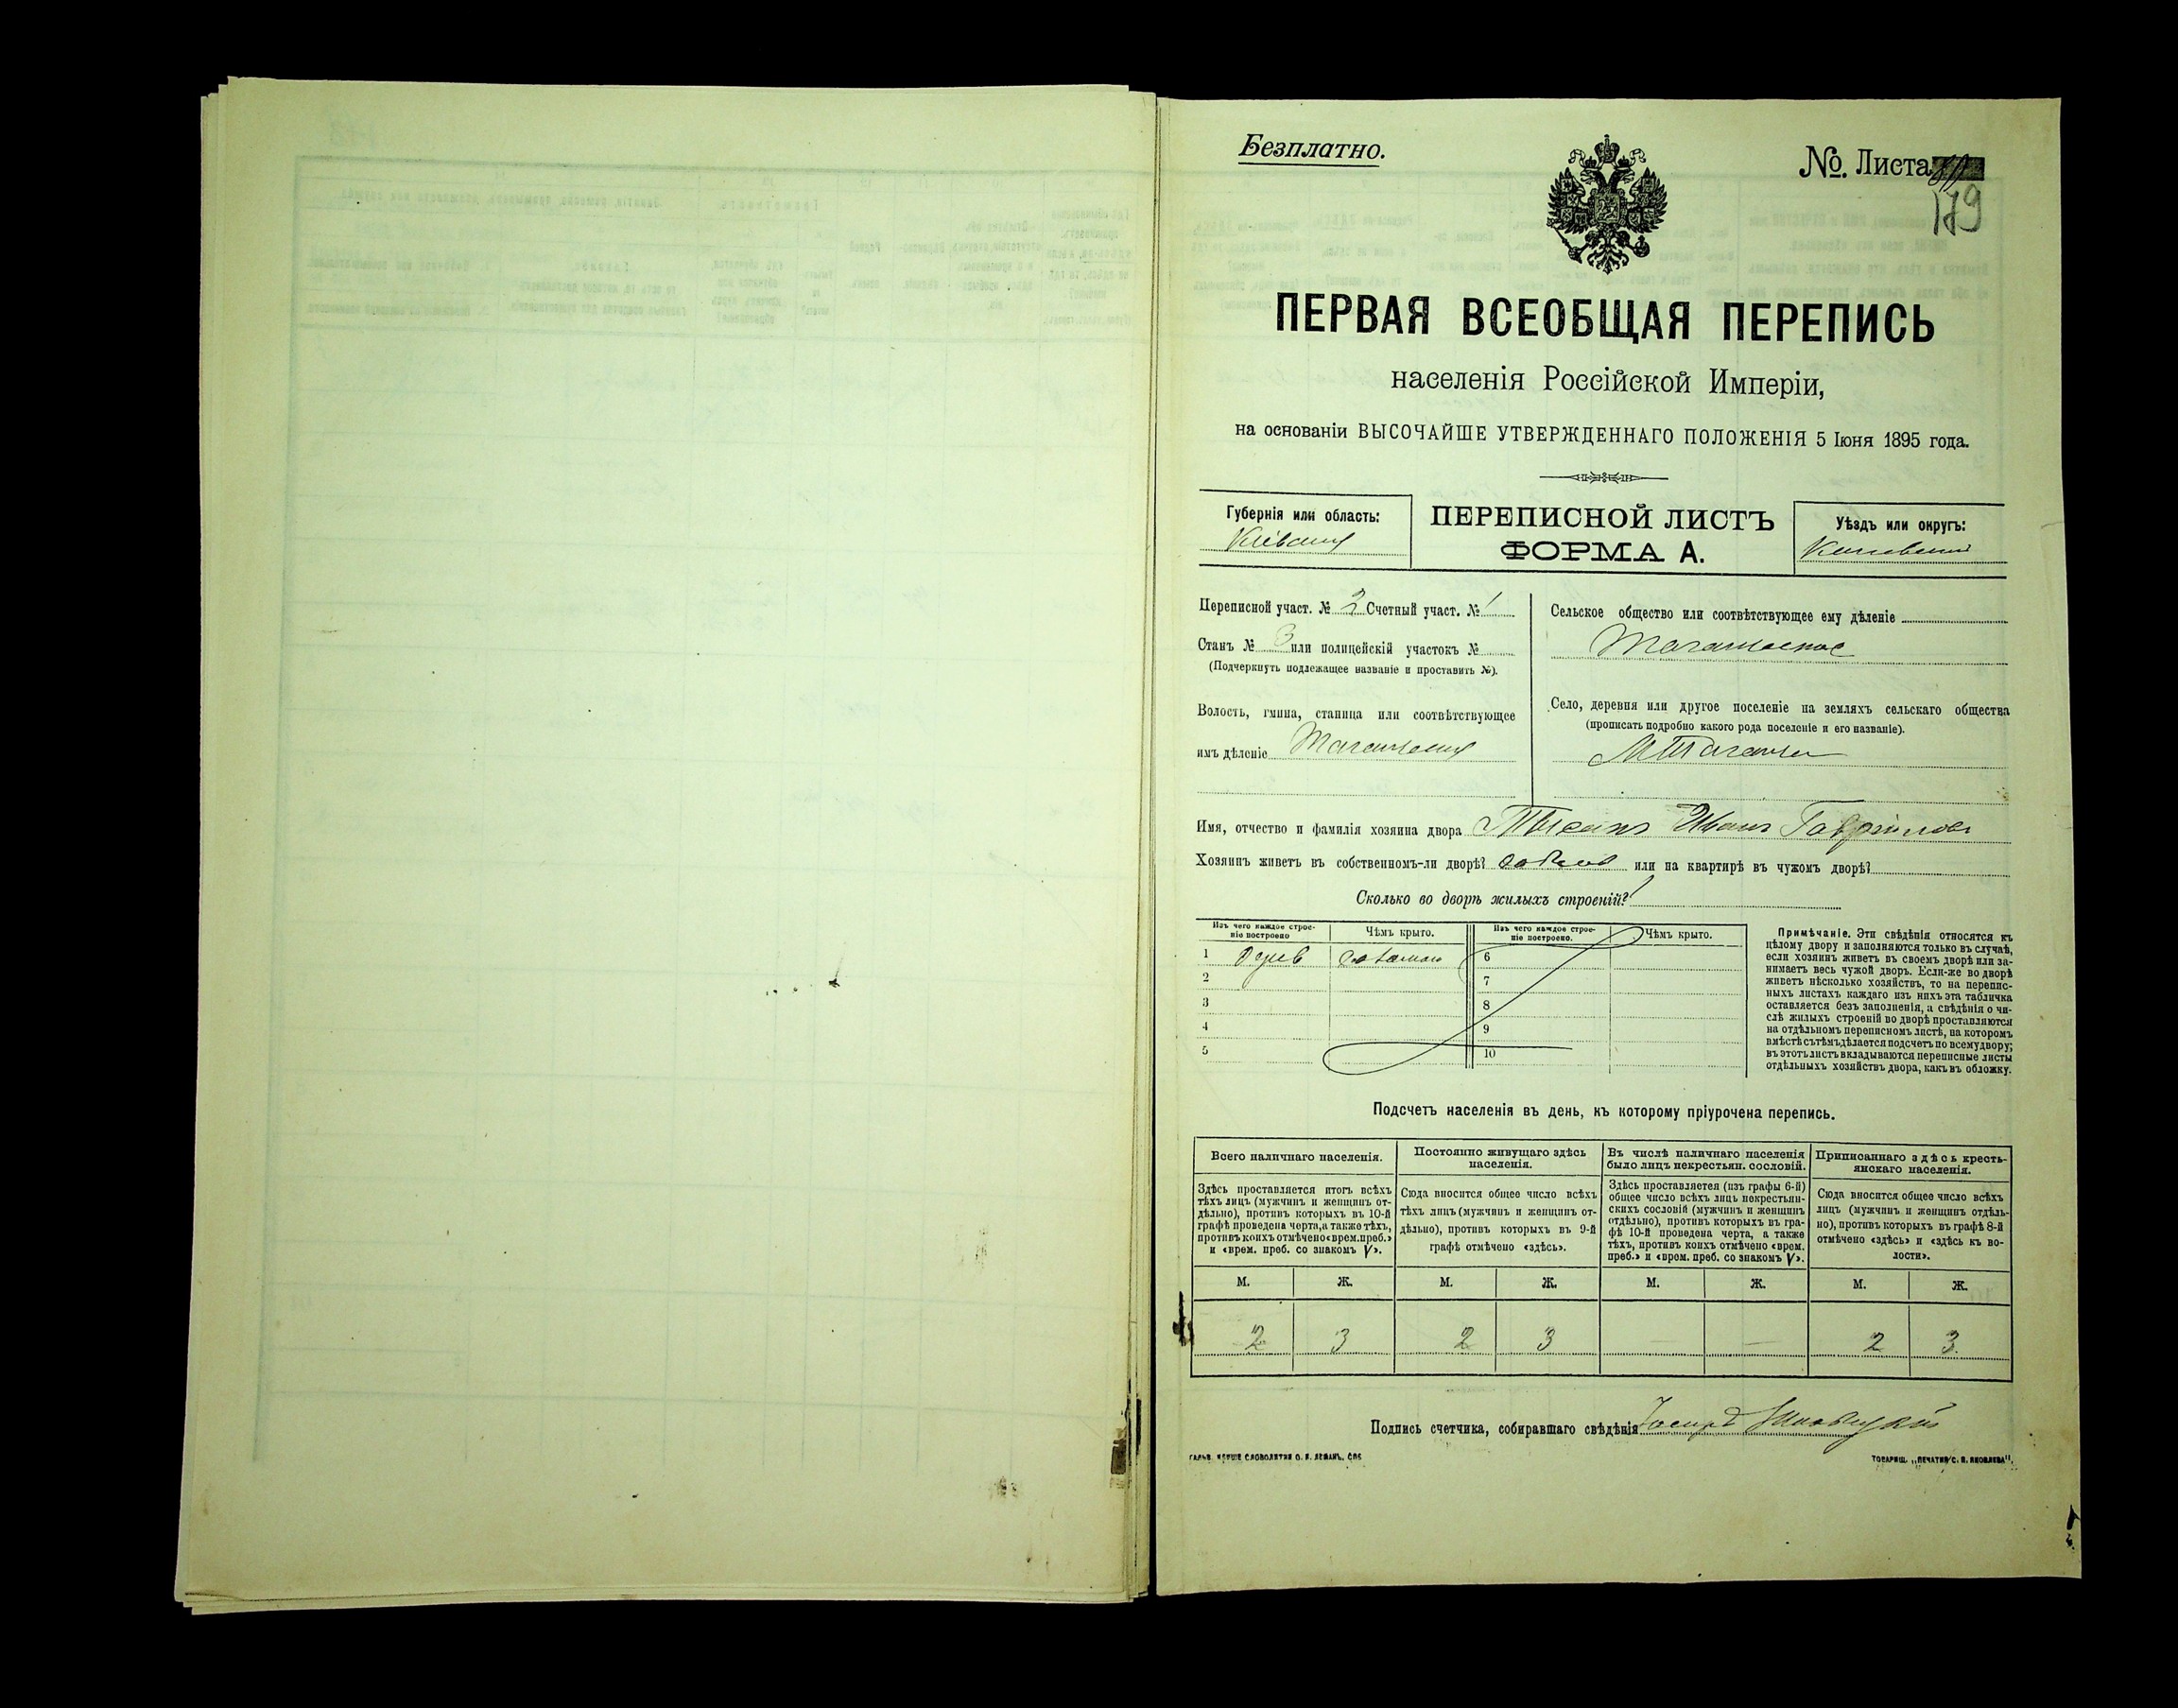 Безплатно.
№. Листа
179
ПЕРВАЯ ВСЕОБЩАЯ ПЕРЕПИСЬ
населенія Россійской Имперіи,
на основаніи ВЫСОЧАЙШЕ УТВЕРЖДЕННАГО ПОЛОЖЕНІЯ 5 Іюня 1895 года.
Губернія или область:
Кіевская
ПЕРЕПИСНОЙ ЛИСТЪ
ФОРМА А.
Уѣздъ или округъ:
Каневскій
Переписной участ. № 2 Счетный участ. № 1
Станъ № 3 или полицейскій участокъ №
(Подчеркнуть подлежащее названіе и проставить №).
Волость, гмина, станица или соотвѣтствующее
имъ дѣленіе Таганская
Сельское общество или соотвѣтствующее ему дѣленіе
Таганское
Село, деревня или другое поселеніе на земляхъ сельскаго общества
(прописать подробно какого рода поселеніе и его названіе).
М Таганча
Имя, отчество и фамилія хозяина двора Иванъ Гавриловъ
Хозяинъ живетъ въ собственномъ-ли дворѣ? или на квартирѣ въ чужомъ дворѣ?
Сколько во дворѣ жилыхъ строеній? 1
Изъ чего каждое строе-
ніе построено
Чѣмъ крыто.
Изъ чего каждое строе-
ніе построено.
Чѣмъ крыто.
1 дерев соломою
2
3
4
5
6
7
8
9
10
Примѣчаніе. Эти свѣдѣнія относятся къ
цѣлому двору и заполняются только въ случаѣ,
если хозяинъ живетъ въ своемъ дворѣ или за-
нимаетъ весь чужой дворъ. Если-же во дворѣ
живетъ нѣсколько хозяйствъ, то на перепис-
ныхъ листахъ каждаго изъ нихъ эта табличка
оставляется безъ заполненія, а свѣдѣнія о чи-
слѣ жилыхъ строеній во дворѣ проставляются
на отдѣльномъ переписномъ листѣ, на которомъ
вмѣстѣ съ тѣмъ дѣлается подсчетъ по всему двору;
въ этотъ листъ вкладываются переписные листы
отдѣльныхъ хозяйствъ двора, какъ въ обложку.
Подсчетъ населенія въ день, къ которому пріурочена перепись.
Всего наличнаго населенія.
Здѣсь проставляется итогъ всѣхъ
тѣхъ лицъ (мужчинъ и женщинъ от-
дѣльно), противъ которыхъ въ 10-й
графѣ проведена черта, а также тѣхъ,
противъ коихъ отмѣчено «врем. преб.»
и «врем. преб. со знакомъ V».
Постоянно живущаго здѣсь
населенія.
Сюда вносится общее число всѣхъ
тѣхъ лицъ (мужчинъ и женщинъ от-
дѣльно), противъ которыхъ въ 9-й
графѣ отмѣчено «здѣсь».
Въ числѣ наличнаго населенія
было лицъ некрестьян. сословій.
Здѣсь проставляется (изъ графы 6-й)
общее число всѣхъ лицъ некрестьян-
скихъ сословій (мужчинъ и женщинъ
отдѣльно), противъ которыхъ въ гра-
фѣ 10-й проведена черта, а также
тѣхъ, противъ коихъ отмѣчено «врем.
преб.» и «врем. преб. со знакомъ V».
Приписаннаго здѣсь кресть-
янскаго населенія.
Сюда вносится общее число всѣхъ
лицъ (мужчинъ и женщинъ отдѣль-
но), противъ которыхъ въ графѣ 8-й
отмѣчено «здѣсь» и «здѣсь къ во-
лости».
М. Ж. М. Ж. М. Ж. М. Ж.
2 3 2 3 — — 2 3
Подпись счетчика, собиравшаго свѣдѣнія
ТОВАРИЩ. „ПЕЧАТНЯ С. П. ЯКОВЛЕВА".